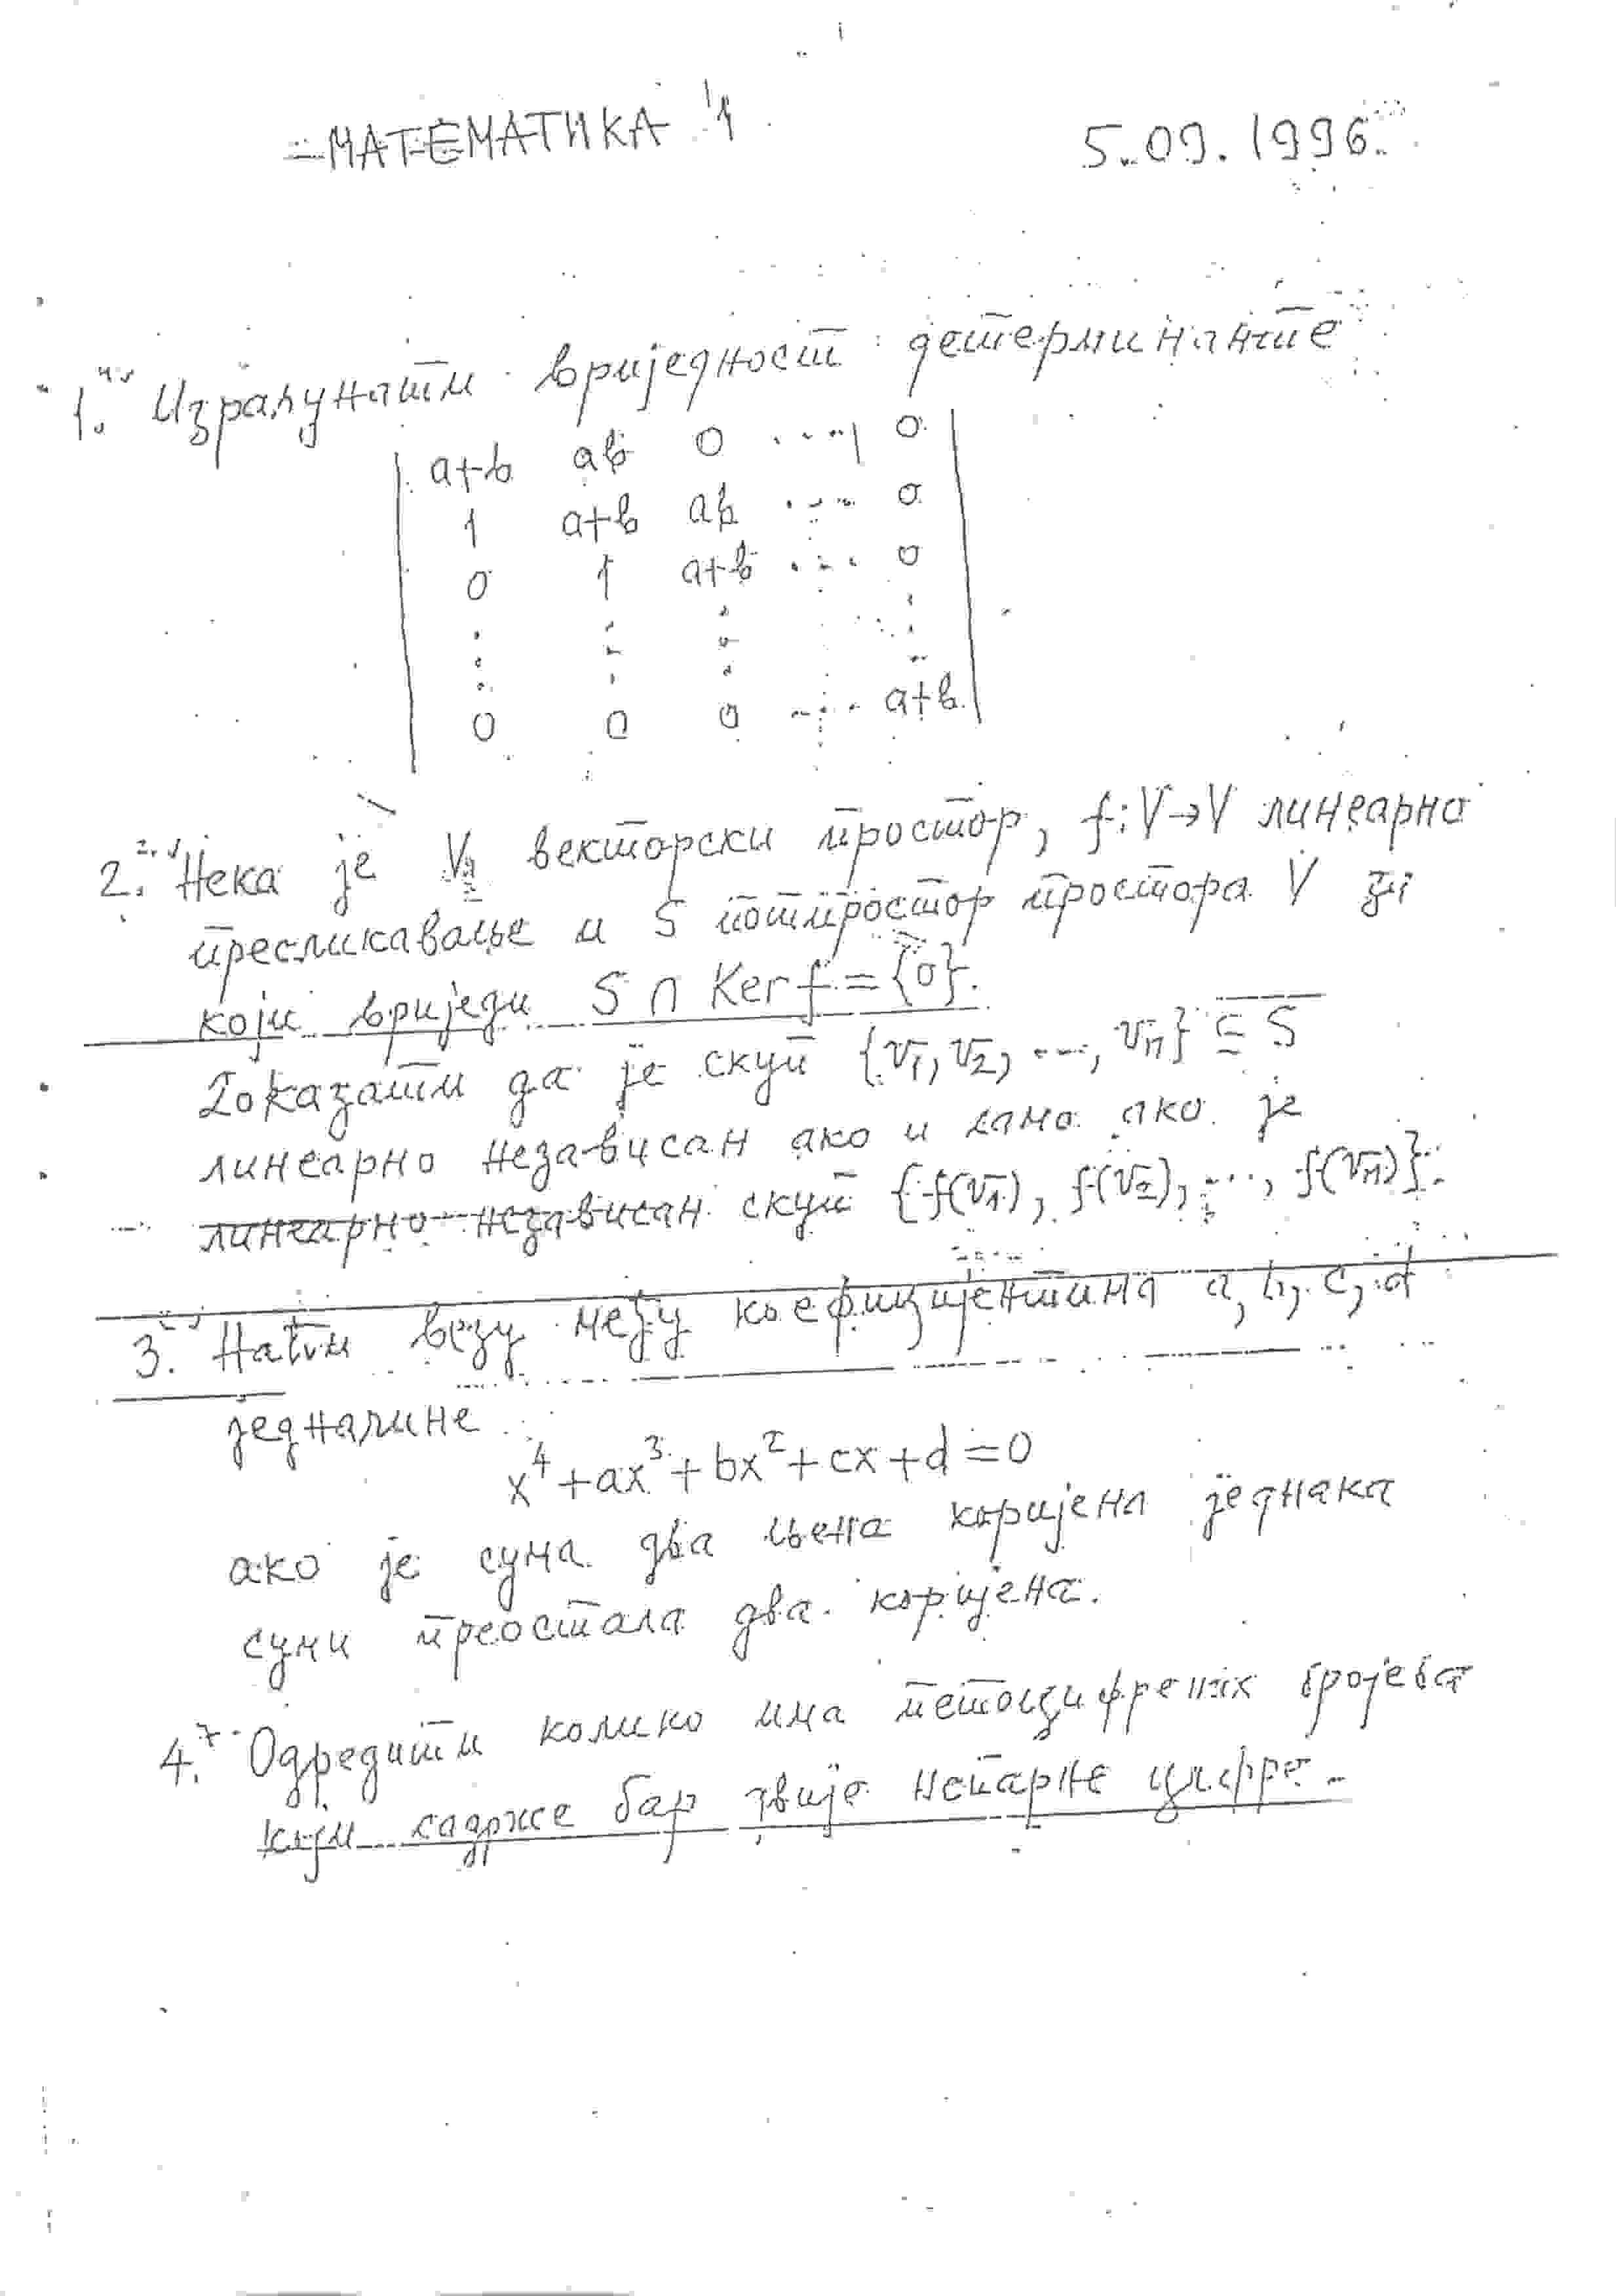 МАТЕМАТИКА 1
5.09.1996.
1. Израчунати вриједност детерминанте
a+b ab 0 ... 0
1 a+b ab ... 0
0 1 a+b ... 0
0 0 0 ... a+b
2. Нека је V векторски простор, f: V→V линеарно
пресликавање и S потпростор простора V за
који вриједи S ∩ Ker f = {0}.
Доказати да је скуп {v₁, v₂, ..., vₙ} ⊆ S
линеарно независан ако и само ако је
линеарно независан скуп {f(v₁), f(v₂), ..., f(vₙ)}.
3. Наћи везу међу коефицијентима a, b, c, d
једначине
x⁴ + ax³ + bx² + cx + d = 0
ако је сума два њена коријена једнака
суми преостала два коријена.
4. Одредити колико има петоцифрених бројева
који садрже бар двије непарне цифре.